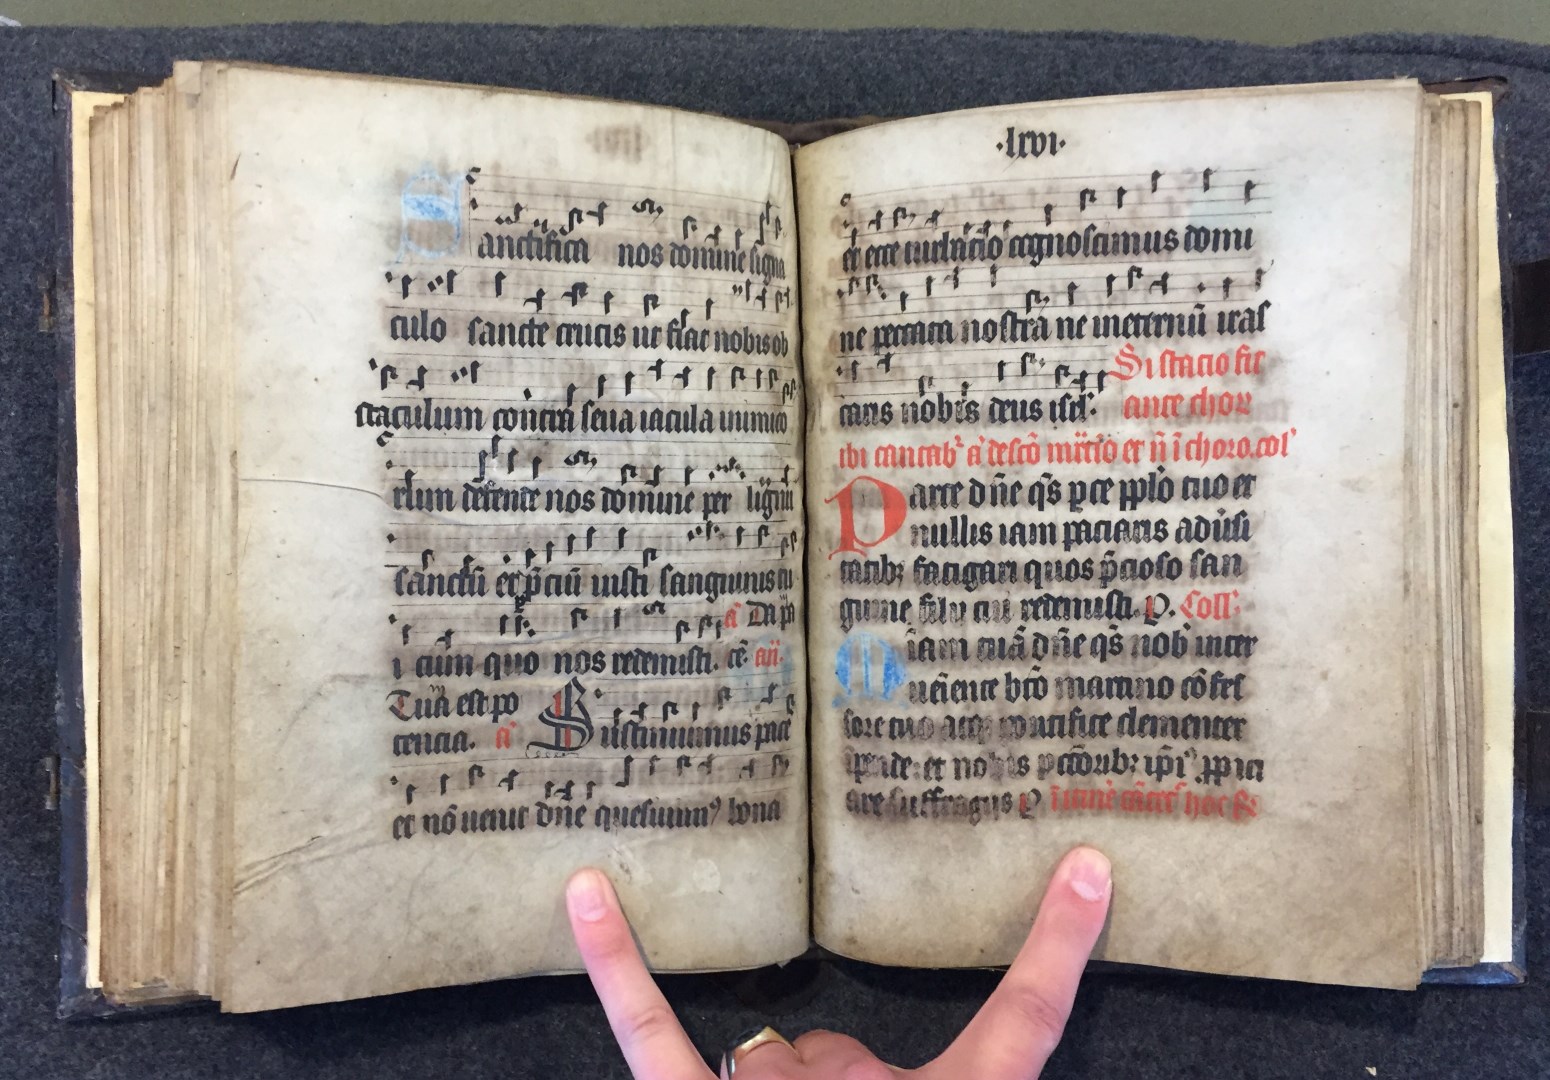 Sanctifica nos domine signa
culo sancte crucis ut fiat nobis ob
staculum contra seua iacula inimico
rum defende nos domine per lignū
sanctū et p̄ciū iusti sanguinis tu
a Da pa
i cum quo nos redemisti. cē añ.
Tua est po
tencia. a Sustinuimus pacē
et nō uenit dn̄e quesiuimꝰ bona
·lxvi·
et ecce turbacio cognoscimus domi
ne peccata nostra ne ineternū iras
Si stacio fit
caris nobis deus isrl̄. ante chor
ibi cantab̄ a descō et n̄ ī choro. col̄
Parce dn̄e qs̄ ꝑce ppl̄o tuo et
nullis iam paciaris aduˀsi
tatibꝫ fatigari quos p̄cioso san
guine filii tui redemisti. P. Coll̄
Miam tuā dn̄e qs̄ nob̄ inter
ueniente btō martino cōfes
sore tuo atqꝫ pontifice clementer
īpende: et nobis pctōribꝫ ip̄iꝰ ꝓpici
are suffragiis P hoc